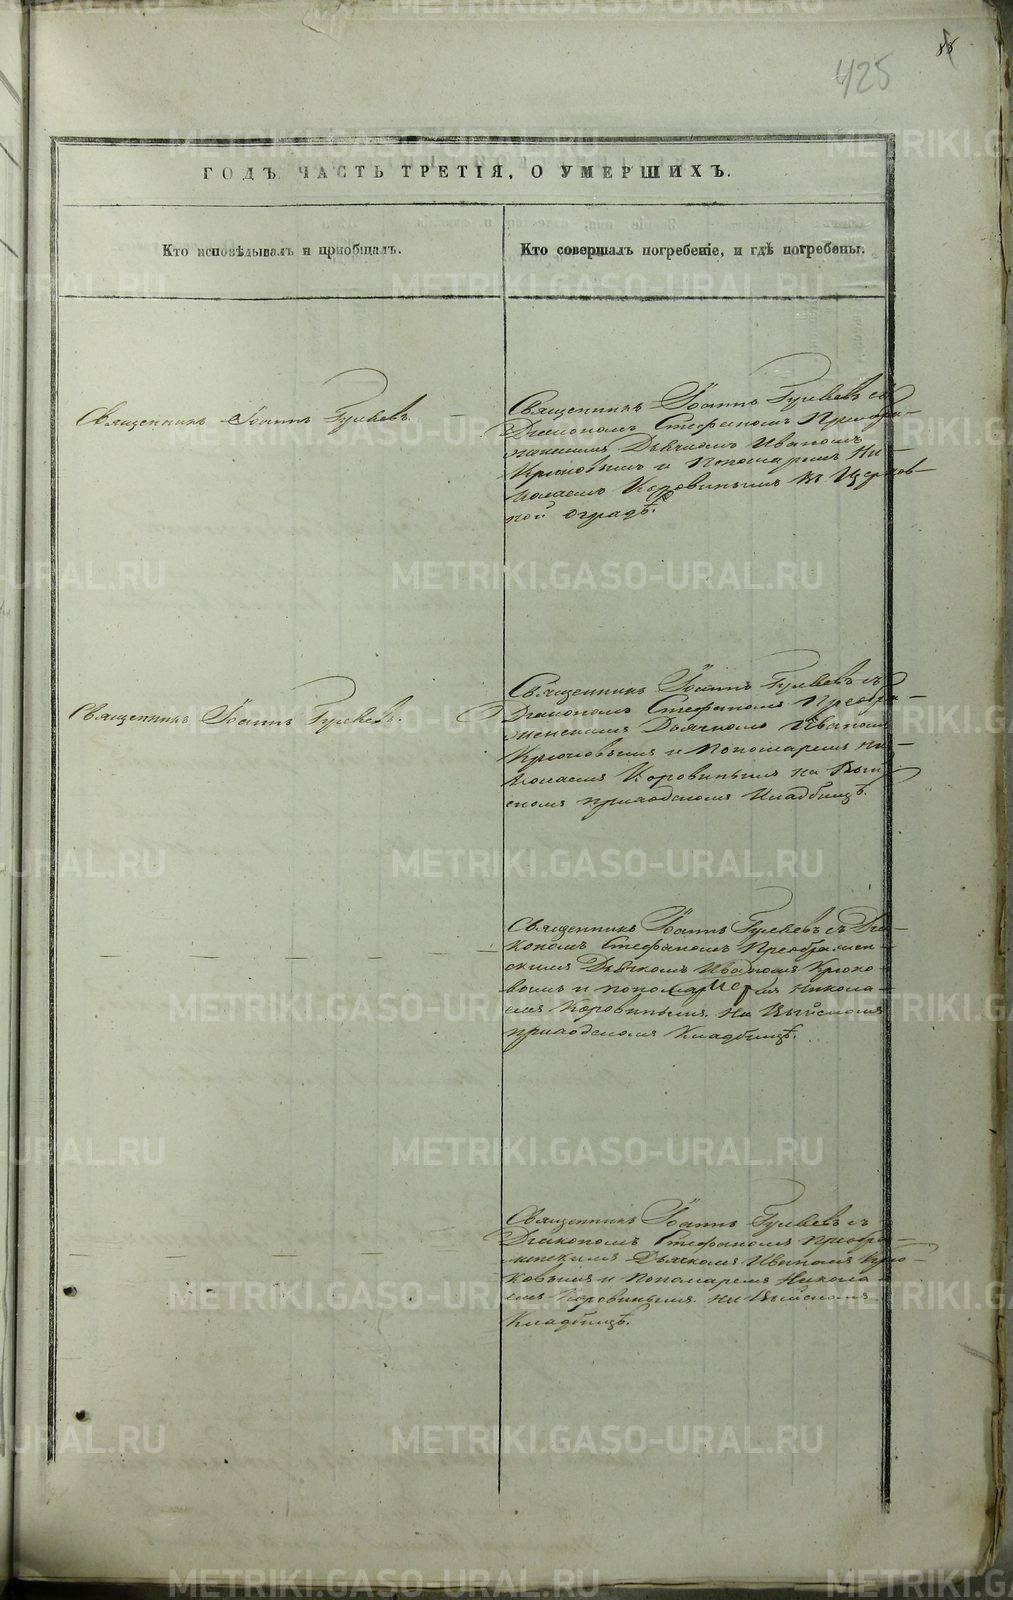 425
ГОДЪ. ЧАСТЬ ТРЕТІЯ, О УМЕРШИХЪ.
Кто исповѣдывалъ и приобщалъ.
Кто совершалъ погребеніе, и гдѣ погребены.
Священникъ Іоаннъ Гулевъ.
Священникъ Іоаннъ Гулевъ съ
Діакономъ Стефаномъ Преобра-
женскимъ Дьячкомъ Иваномъ
Крюковымъ и Пономаремъ Ни-
колаемъ Коровинымъ въ Церков-
ной оградѣ.
Священникъ Іоаннъ Гулевъ.
Священникъ Іоаннъ Гулевъ съ
Діакономъ Стефаномъ Преобра-
женскимъ Дьячкомъ Иваномъ
Крюковымъ и Пономаремъ Ни-
колаемъ Коровинымъ на Вый-
скомъ приходскомъ Кладбищѣ.
Священникъ Іоаннъ Гулевъ съ Діа-
кономъ Стефаномъ Преображен-
скимъ Дьячкомъ Иваномъ Крюко-
вымъ и Никола-
емъ Коровинымъ. На Выйскомъ
приходскомъ Кладбищѣ.
Священникъ Іоаннъ Гулевъ съ
Діакономъ Стефаномъ Преобра-
женскимъ Дьячкомъ Иваномъ Крю-
ковымъ и Пономаремъ Никола-
емъ Коровинымъ. На Выйскомъ
Кладбищѣ.
METRIKI.GASO-URAL.RU